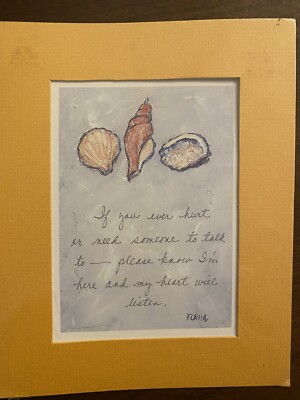 If you ever hurt
or need someone to talk
to — please know I'm
here and my heart will
listen.
FLAVIA